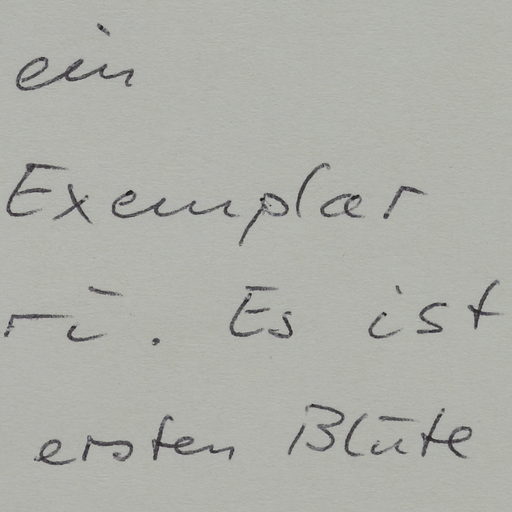 ein
Exemplar
rü. Es ist
ersten Blüte